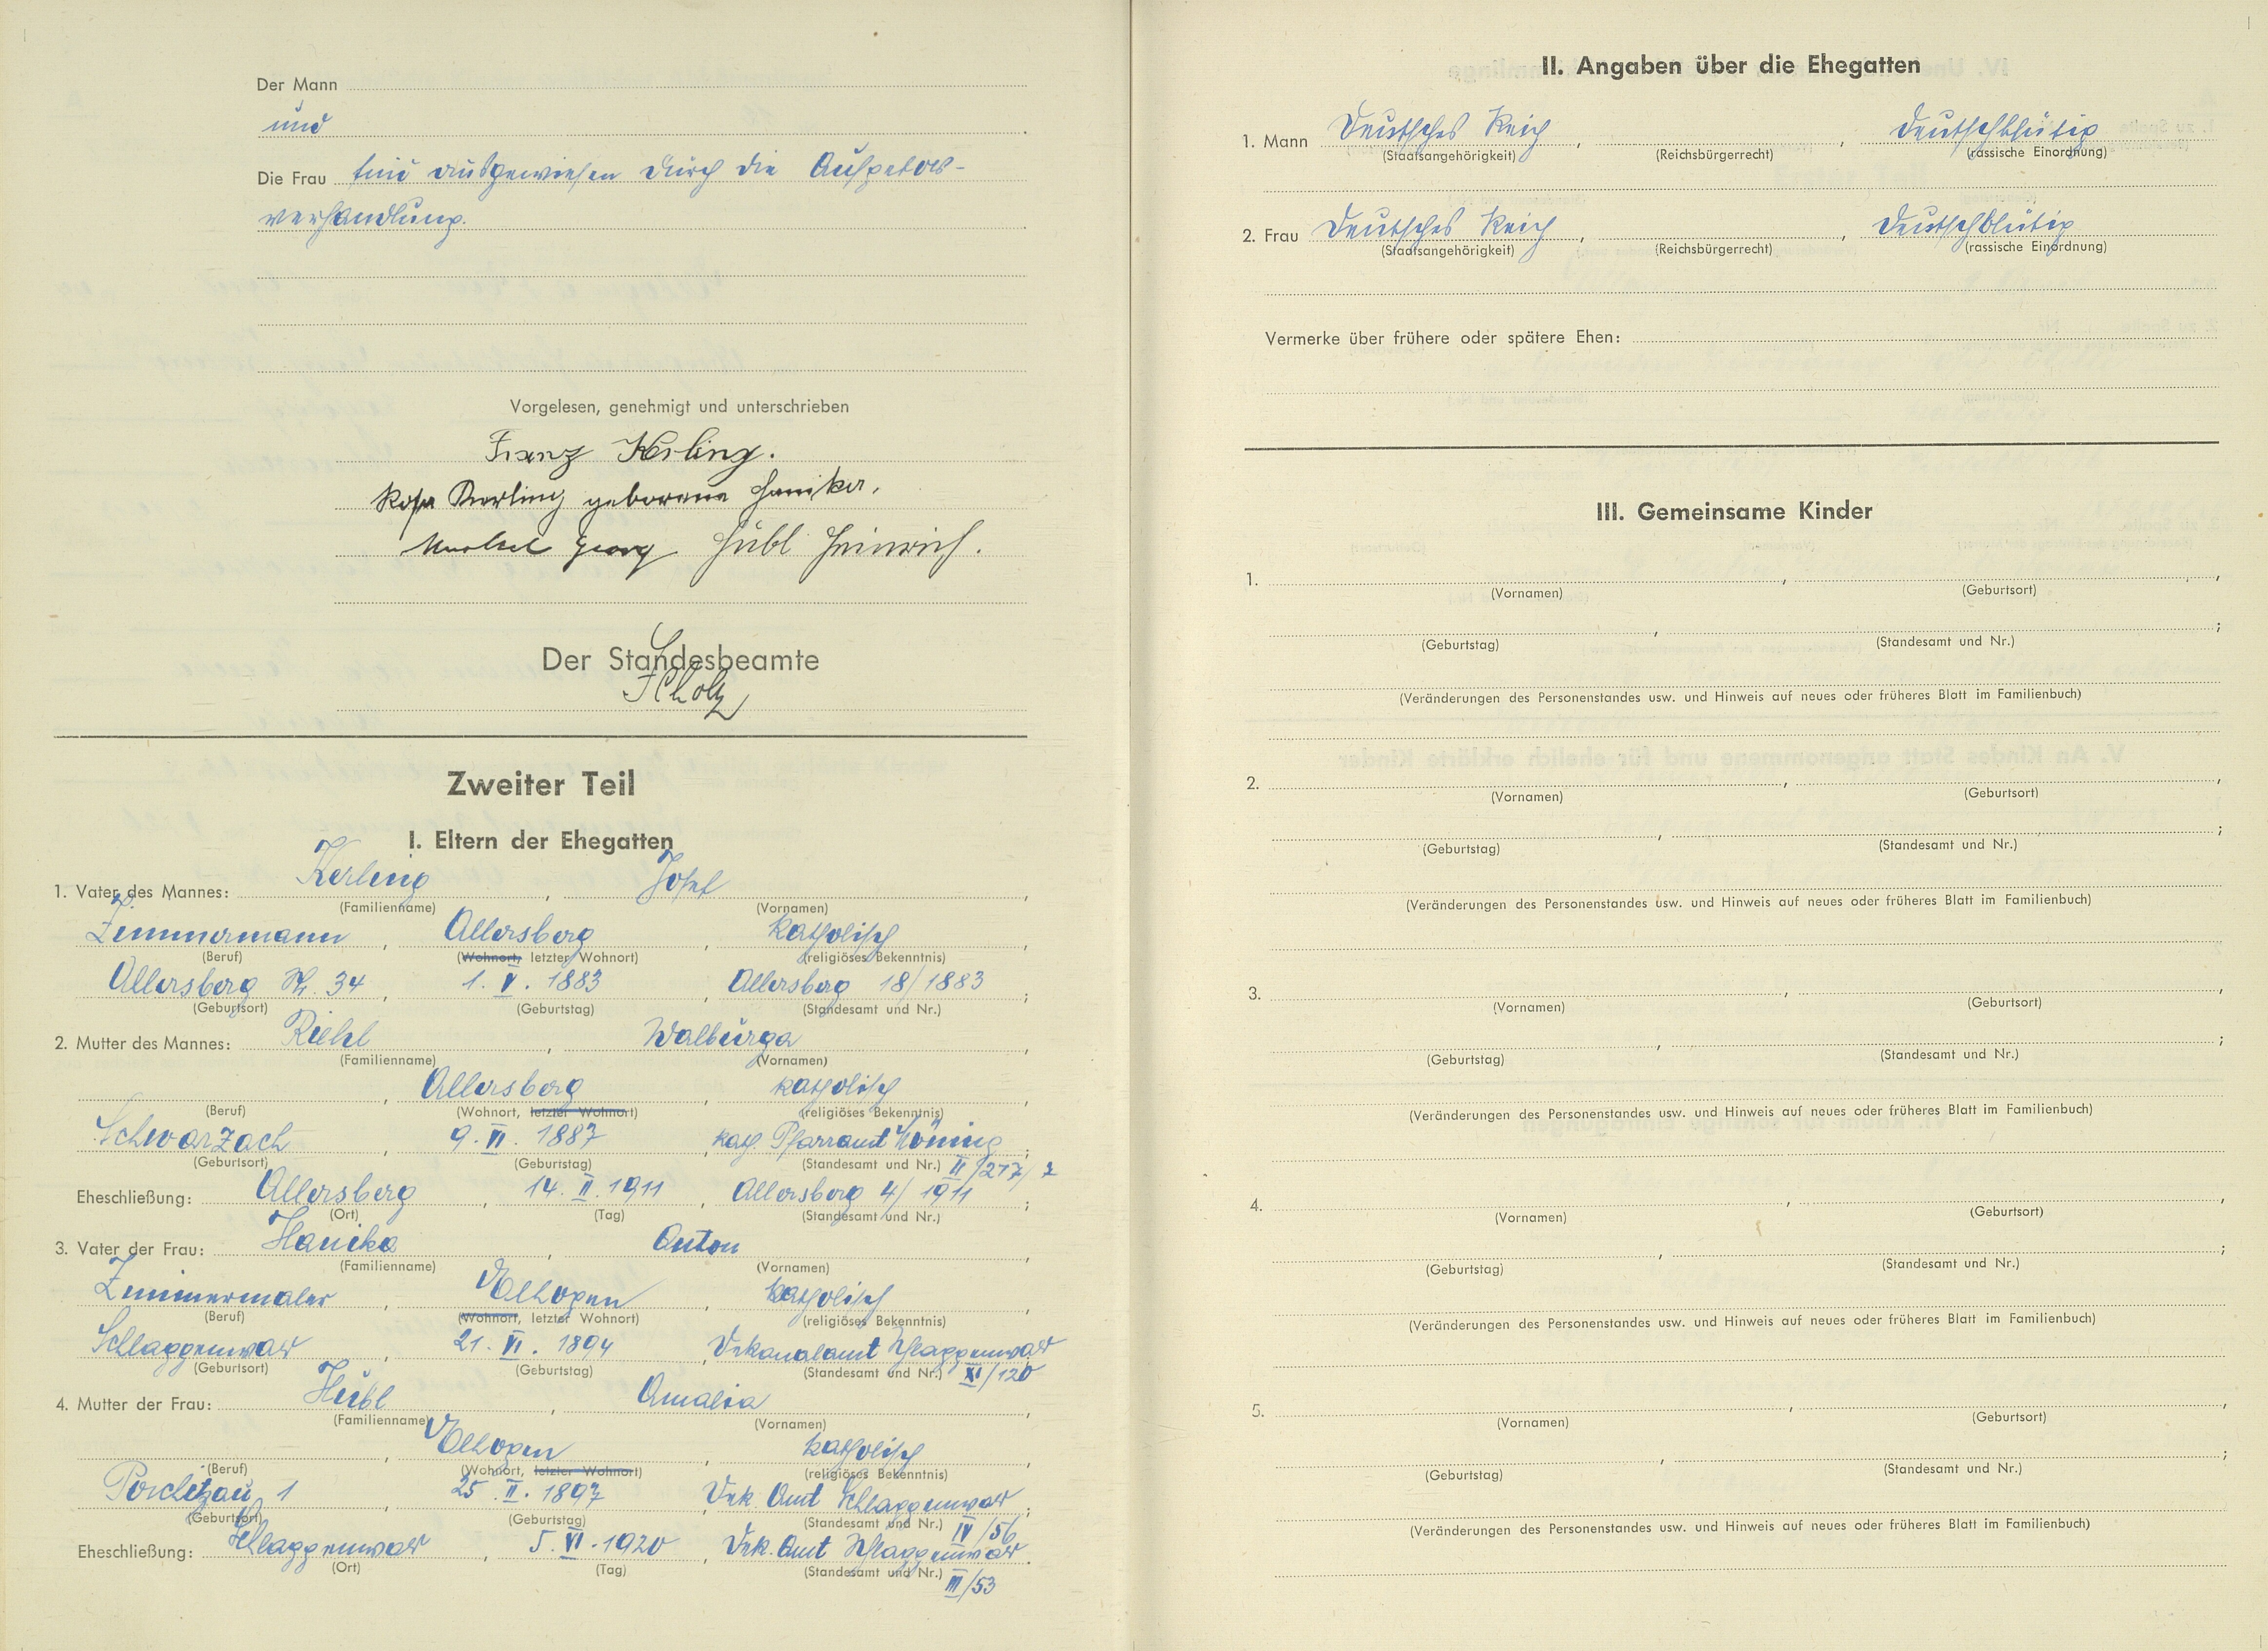 Der Mann
und
Die Frau sind ausgewiesen durch die Aufgebots-
verhandlung.
Vorgelesen, genehmigt und unterschrieben
Franz Kerling.
Rosa Kerling geborene Hanika.
Georg Hübl Heinrich.
Der Standesbeamte
Scholz
Zweiter Teil
I. Eltern der Ehegatten
1. Vater des Mannes: Kerling, Josef,
(Familienname) (Vornamen)
Zimmermann, Allersberg, katholisch,
(Beruf) (Wohnort, letzter Wohnort) (religiöses Bekenntnis)
Allersberg Nr. 34, 1. V. 1883, Allersberg 18/1883;
(Geburtsort) (Geburtstag) (Standesamt und Nr.)
2. Mutter des Mannes: Riehl, Walburga,
(Familienname) (Vornamen)
Allersberg, katholisch,
(Beruf) (Wohnort, letzter Wohnort) (religiöses Bekenntnis)
Schwarzach, 9. VI. 1887, kath. Pfarramt;
(Geburtsort) (Geburtstag) (Standesamt und Nr.) II/217/7
Eheschließung: Allersberg, 14. II. 1911, Allersberg 4/1911;
(Ort) (Tag) (Standesamt und Nr.)
3. Vater der Frau: Hanika, Anton,
(Familienname) (Vornamen)
Zimmermaler, Elbogen, katholisch,
(Beruf) (Wohnort, letzter Wohnort) (religiöses Bekenntnis)
Schlaggenwald, 21. VI. 1894, Dekanalamt Schlaggenwald
(Geburtsort) (Geburtstag) (Standesamt und Nr.) XI/120
4. Mutter der Frau: Hübl, Amalia,
(Familienname) (Vornamen)
Elbogen, katholisch,
(Beruf) (Wohnort, letzter Wohnort) (religiöses Bekenntnis)
Poschetzau 1, 25. II. 1897, Dek. Amt Schlaggenwald;
(Geburtsort) (Geburtstag) (Standesamt und Nr.) IV/56
Eheschließung: Schlaggenwald, 5. VI. 1920, Dek. Amt Schlaggenwald.
(Ort) (Tag) (Standesamt und Nr.) III/53
II. Angaben über die Ehegatten
1. Mann Deutsches Reich, , deutschblütig
(Staatsangehörigkeit) (Reichsbürgerrecht) (rassische Einordnung)
2. Frau Deutsches Reich, , deutschblütig
(Staatsangehörigkeit) (Reichsbürgerrecht) (rassische Einordnung)
Vermerke über frühere oder spätere Ehen:
III. Gemeinsame Kinder
1. , ,
(Vornamen) (Geburtsort)
, ;
(Geburtstag) (Standesamt und Nr.)
(Veränderungen des Personenstandes usw. und Hinweis auf neues oder früheres Blatt im Familienbuch)
2. , ,
(Vornamen) (Geburtsort)
, ;
(Geburtstag) (Standesamt und Nr.)
(Veränderungen des Personenstandes usw. und Hinweis auf neues oder früheres Blatt im Familienbuch)
3. , ,
(Vornamen) (Geburtsort)
, ;
(Geburtstag) (Standesamt und Nr.)
(Veränderungen des Personenstandes usw. und Hinweis auf neues oder früheres Blatt im Familienbuch)
4. , ,
(Vornamen) (Geburtsort)
, ;
(Geburtstag) (Standesamt und Nr.)
(Veränderungen des Personenstandes usw. und Hinweis auf neues oder früheres Blatt im Familienbuch)
5. , ,
(Vornamen) (Geburtsort)
, ;
(Geburtstag) (Standesamt und Nr.)
(Veränderungen des Personenstandes usw. und Hinweis auf neues oder früheres Blatt im Familienbuch)